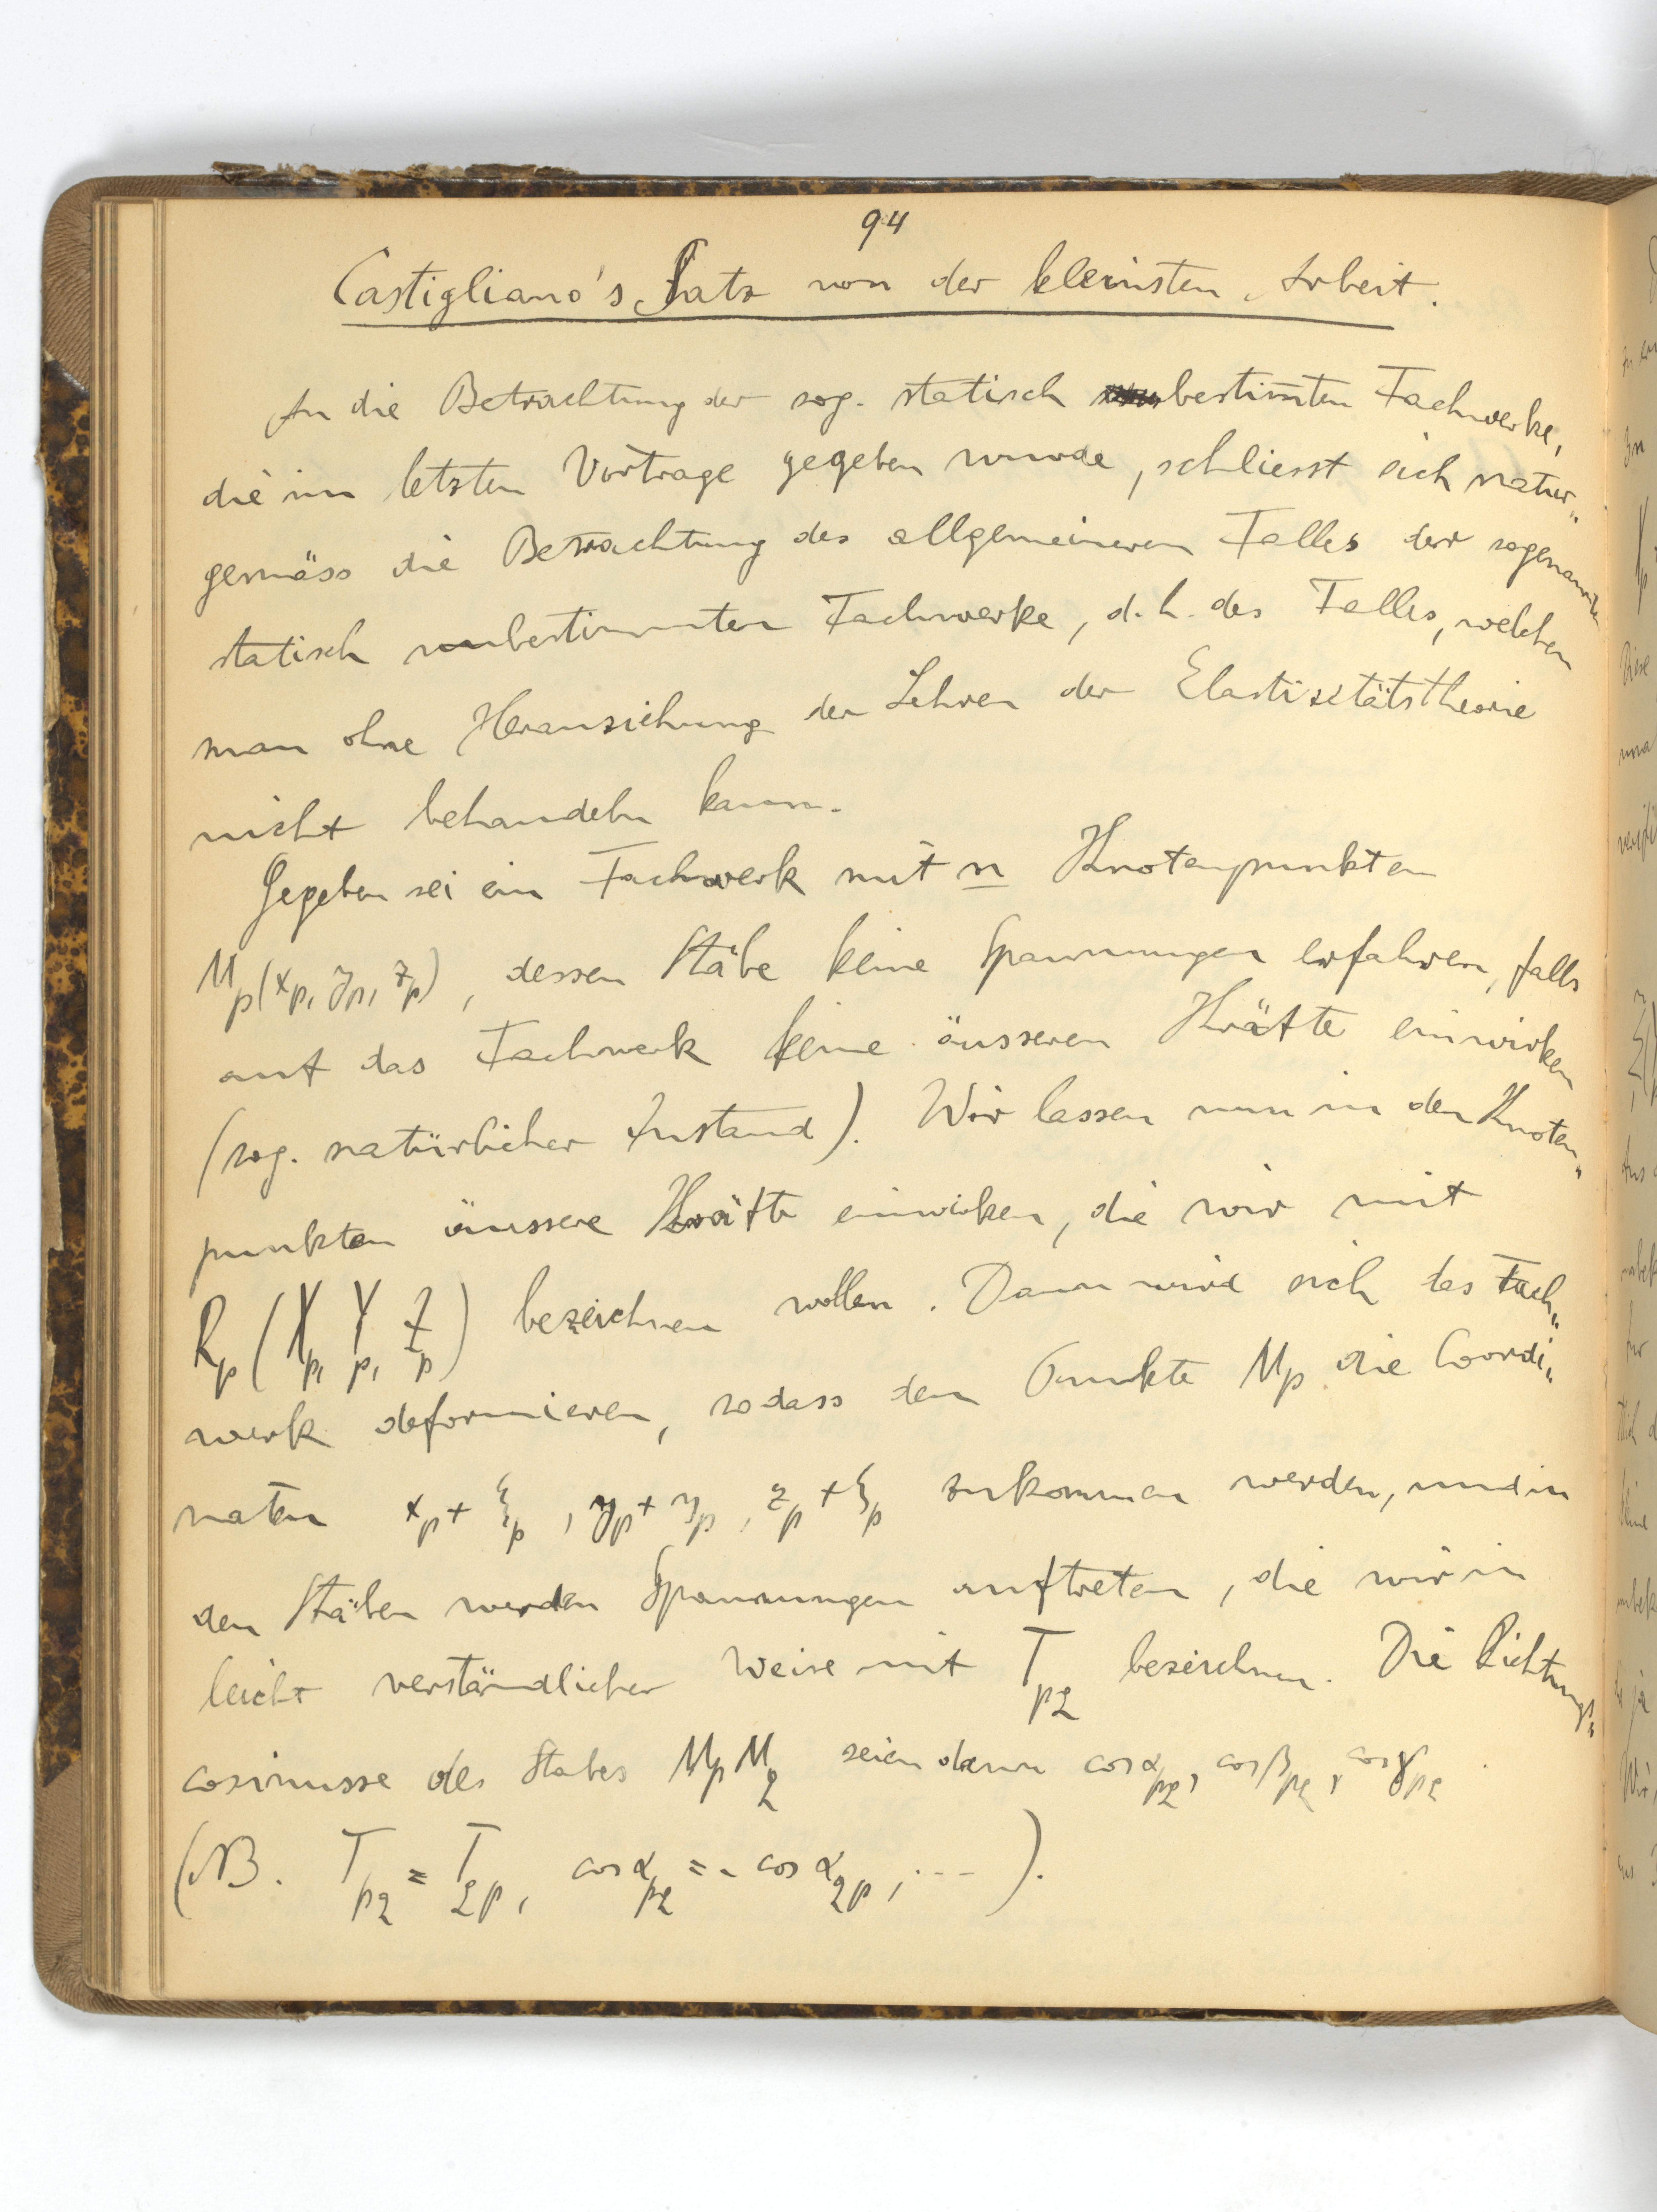 94
Castigliano's Satz von der kleinsten Arbeit.
An die Betrachtung der sog. statisch bestimmten Fachwerke,
die im letzten Vortrage gegeben wurde, schliesst sich natur„
gemäss die Betrachtung des allgemeineren Falles der sogenannten
statisch unbestimmten Fachwerke, d. h. des Falles, welchen
man ohne Heranziehung der Lehren der Elastizitätstheorie
nicht behandeln kann.
Gegeben sei ein Fachwerk mit n Knotenpunkten
M_p(x_p, y_p, z_p), dessen Stäbe keine Spannungen erfahren, falls
auf das Fachwerk keine äusseren Kräfte einwirken
(sog. natürlicher Zustand). Wir lassen nun in den Knoten„
punkten äussere Kräfte einwirken, die wir mit
R_p (X_p, Y_p, Z_p) bezeichnen wollen. Dann wird sich das Fach„
werk deformieren, sodass dem Punkte M_p die Coordi„
naten x_p + ξ_p, y_p + η_p, z_p + ζ_p zukommen werden, und in
den Stäben werden Spannungen auftreten, die wir in
leicht verständlicher Weise mit T_pq bezeichnen. Die Richtungs„
cosinusse des Stabes M_p M_q seien dann cos α_pq, cos β_pq, cos γ_pq.
(NB. T_pq = T_qp, cos α_pq = - cos α_qp, ...).